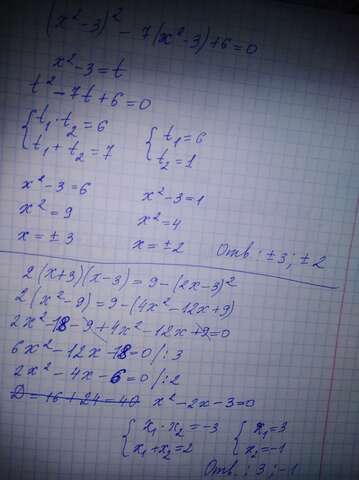 (x²-3)² - 7(x²-3)+6=0
x²-3=t
t²-7t+6=0
{t₁·t₂=6 {t₁=6
{t₁+t₂=7 {t₂=1
x²-3=6 x²-3=1
x²=9 x²=4
x=±3 x=±2 Отв: ±3; ±2
2(x+3)(x-3)=9-(2x-3)²
2(x²-9)=9-(4x²-12x+9)
2x²-18-9+4x²-12x+9=0
6x²-12x-18=0/:3
2x²-4x-6=0/:2
D=16+24=40 x²-2x-3=0
{x₁·x₂=-3 {x₁=3
{x₁+x₂=2 {x₂=-1
Отв.: 3; -1